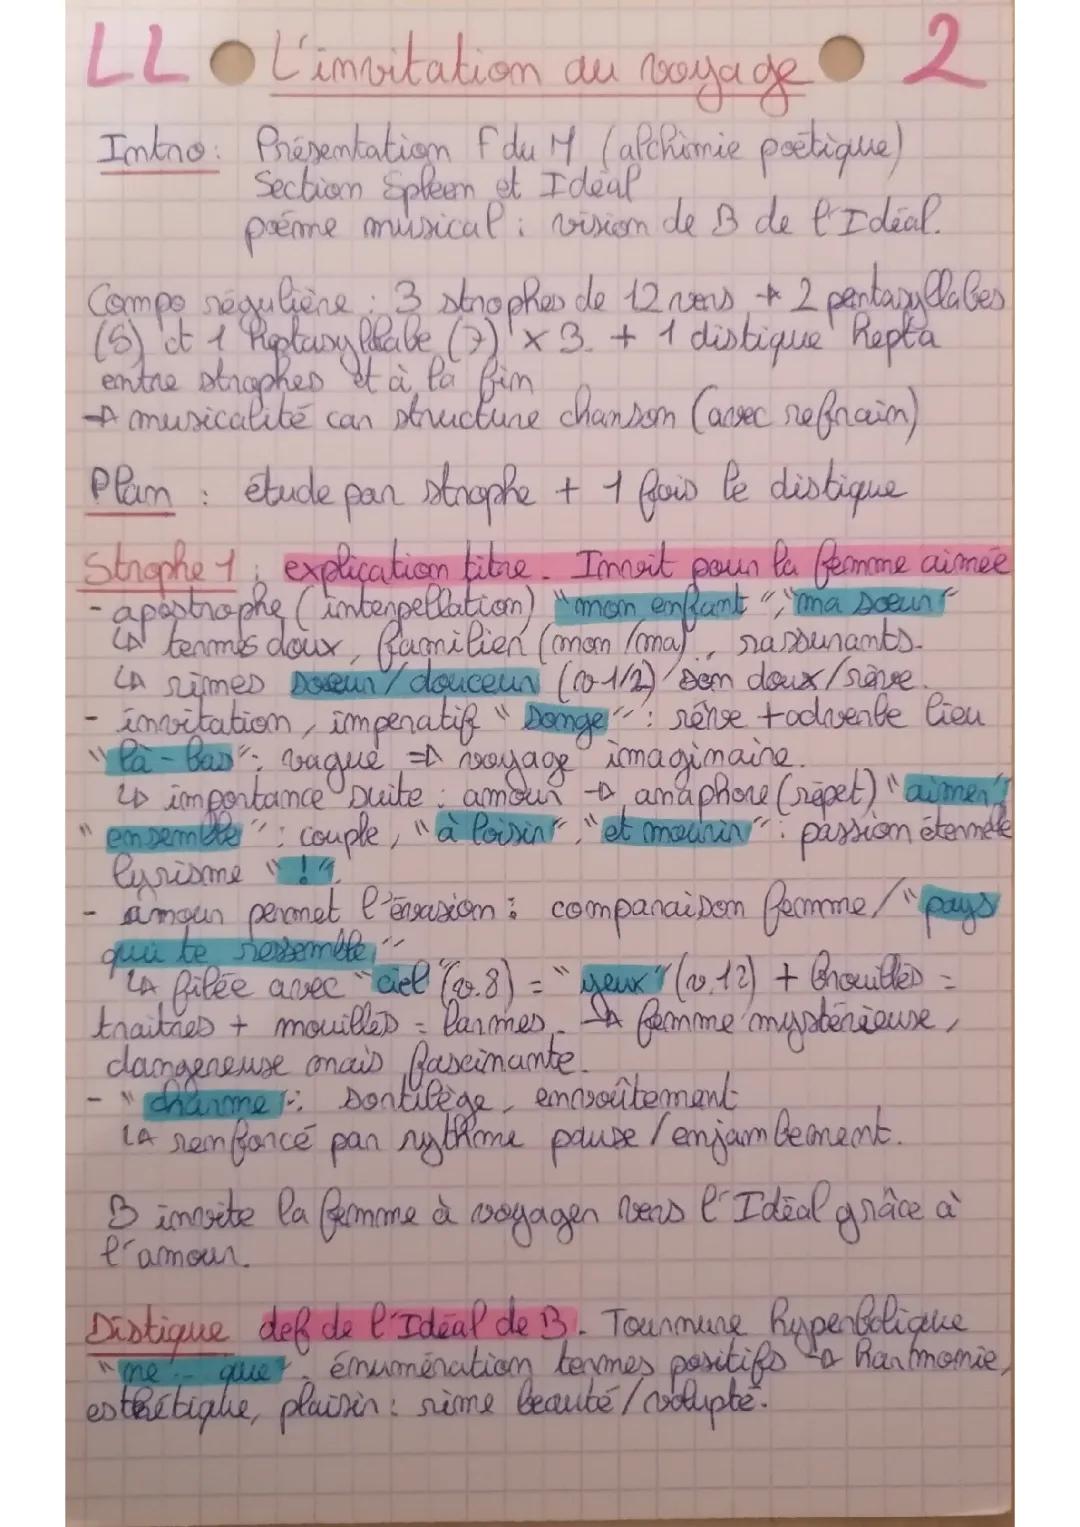 LL L'invitation au voyage 2
Intro: Présentation F du M (alchimie poétique)
Section Spleen et Idéal
poéme musical : vision de B de l'Idéal.
Compo régulière : 3 strophes de 12 vers → 2 pentasyllabes
(5) et 1 heptasyllabe (7) x 3. + 1 distique hepta
entre strophes et à la fin
→ musicalité car structure chanson (avec refrain)
Plan : étude par strophe + 1 fois le distique
Strophe 1 : explication titre. Invit pour la femme aimée
- apostrophe (interpellation) "mon enfant", "ma soeur"
↳ termes doux, familier (mon/ma), rassurants.
↳ rimes soeur/douceur (v 1/2) son doux/rêve.
- invitation, imperatif "songe" : rêve + adverbe lieu
"là-bas" : vague ⇒ voyage imaginaire.
↳ importance suite : amour → anaphore (répet) "aimer"
"ensemble" : couple, "à loisir", "et mourir" : passion éternelle
lyrisme "!".
- amour permet l'évasion : comparaison femme/"pays
qui te ressemble"
↳ filée avec "ciel" (v.8) = "yeux" (v.12) + brouillés =
traitres + mouillés = larmes. → femme mystérieuse,
dangereuse mais fascinante.
- "charme" : sortilège, envoûtement
↳ renforcé par rythme pause/enjambement.
B invite la femme à voyager vers l'Idéal grâce à
l'amour.
Distique def de l'Idéal de B. Tournure hyperbolique
"ne .. que", énumération termes positifs → harmonie,
esthétique, plaisir : rime beauté/volupté.